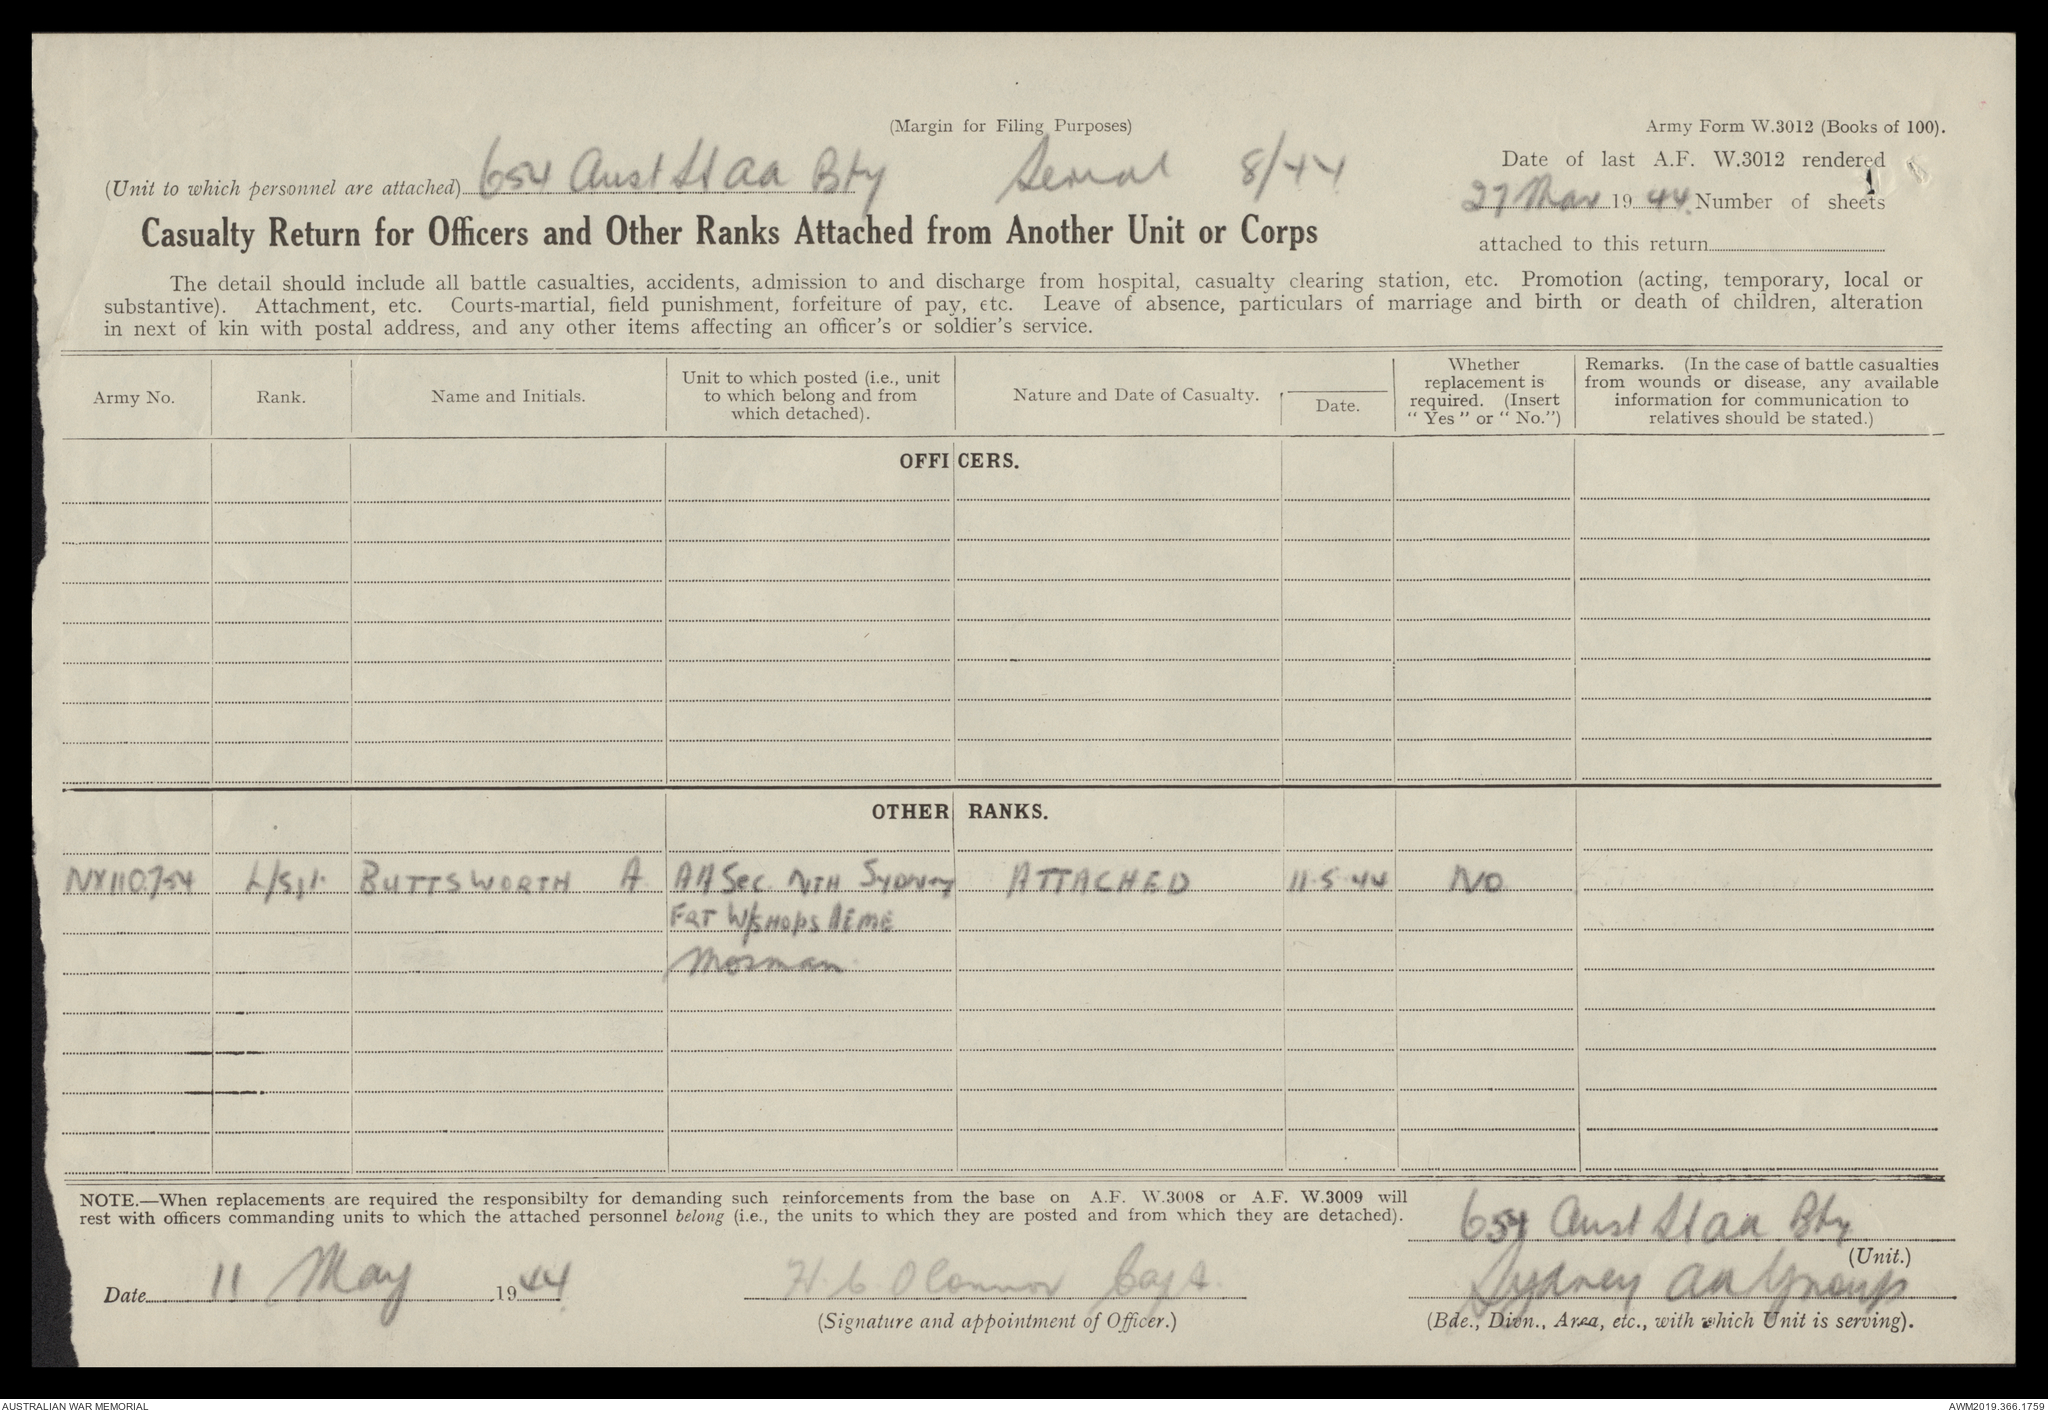 (Margin for Filing Purposes)
Army Form W.3012 (Books of 100).
(Unit to which personnel are attached) 654 Aust St aa Bty Serial 8/44
Date of last A.F. W.3012 rendered
27 Mar 1944. Number of sheets
attached to this return
1
Casualty Return for Officers and Other Ranks Attached from Another Unit or Corps
The detail should include all battle casualties, accidents, admission to and discharge from hospital, casualty clearing station, etc. Promotion (acting, temporary, local or
substantive). Attachment, etc. Courts-martial, field punishment, forfeiture of pay, etc. Leave of absence, particulars of marriage and birth or death of children, alteration
in next of kin with postal address, and any other items affecting an officer's or soldier's service.
Army No.
Rank.
Name and Initials.
Unit to which posted (i.e., unit
to which belong and from
which detached).
Nature and Date of Casualty.
Date.
Whether
replacement is
required. (Insert
" Yes " or " No.")
Remarks. (In the case of battle casualties
from wounds or disease, any available
information for communication to
relatives should be stated.)
OFFICERS.
OTHER RANKS.
NX110754 L/Sjt. BUTTSWORTH A AA Sec. NTH SYDNEY ATTACHED 11-5-44 NO
W/SHOPS AEME
Mosman
NOTE.—When replacements are required the responsibilty for demanding such reinforcements from the base on A.F. W.3008 or A.F. W.3009 will
rest with officers commanding units to which the attached personnel belong (i.e., the units to which they are posted and from which they are detached).
654 Aust St aa Bty
(Unit.)
Date 11 May 1944.
H. C. O'Connor Capt.
(Signature and appointment of Officer.)
Sydney aa Group
(Bde., Divn., Area, etc., with which Unit is serving).
AUSTRALIAN WAR MEMORIAL
AWM2019.366.1759